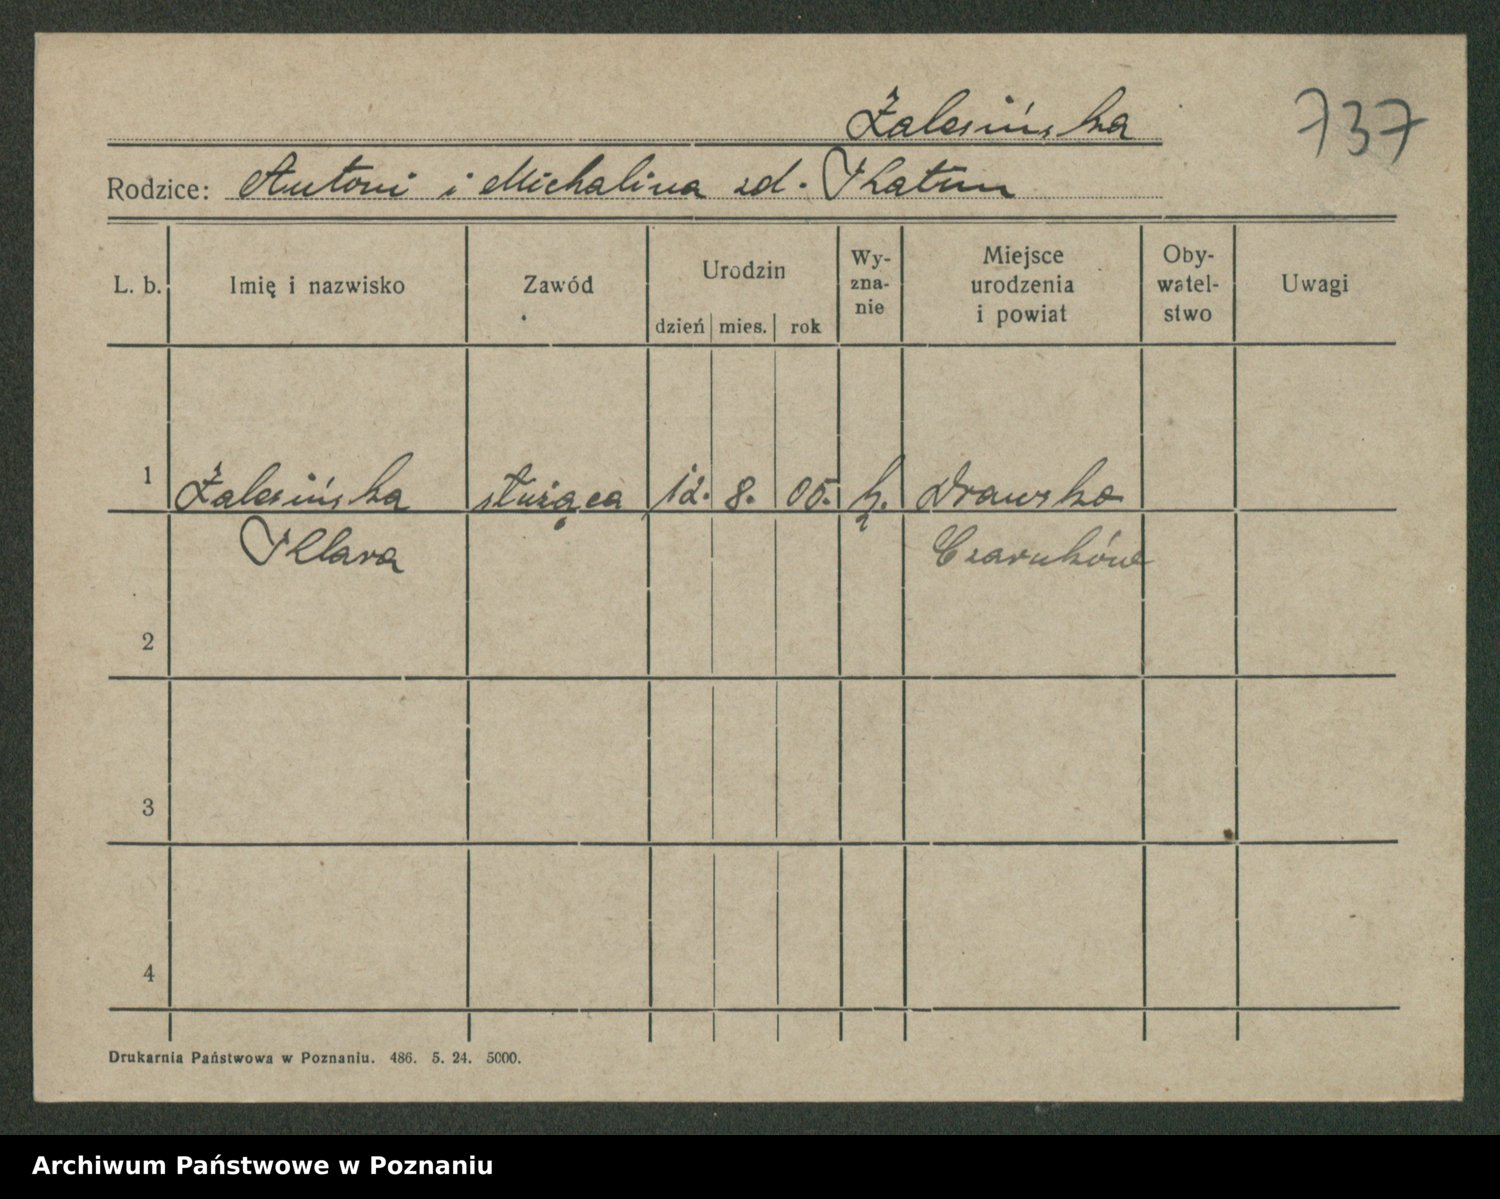 Żalesińska
737
Rodzice: Antoni i Michalina zd. Katun
L. b. Imię i nazwisko Zawód Urodzin dzień mies. rok Wy-zna-nie Miejsce urodzenia i powiat Oby-watel-stwo Uwagi
1 Żalesińska służąca 12. 8. 05. k. Drawsko
Klara Czarnków
2
3
4
Drukarnia Państwowa w Poznaniu. 486. 5. 24. 5000.
Archiwum Państwowe w Poznaniu